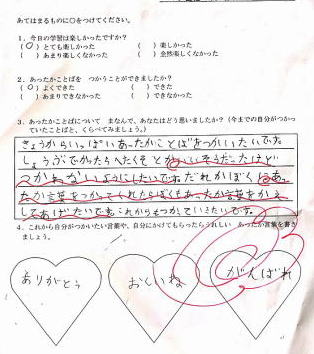 あてはまるものに○をつけてください。
1．今日の学習は楽しかったですか？
（○）とても楽しかった （ ）楽しかった
（ ）あまり楽しくなかった （ ）全然楽しくなかった
2．あったかことばを つかうことができましたか？
（○）よくできた （ ）できた
（ ）あまりできなかった （ ）できなかった
3．あったかことばについて まなんで、あなたはどう思いましたか？（今までの自分がつかっ
ていたことばと、くらべてみましょう。）
きょうからいっぱいあったかことばをつかいたいです。
しょうぶでかったらへたくそとか
つかわないようにしたいです。だれかがぼくにあっ
たか言葉をつかってくれたらぼくもあったか言葉をかえ
してあげたいです。これからもつかっていきたいです。
4．これから自分がつかいたい言葉や、自分にかけてもらったらうれしい あったか言葉を書き
ましょう。
ありがとう おしいね がんばれ